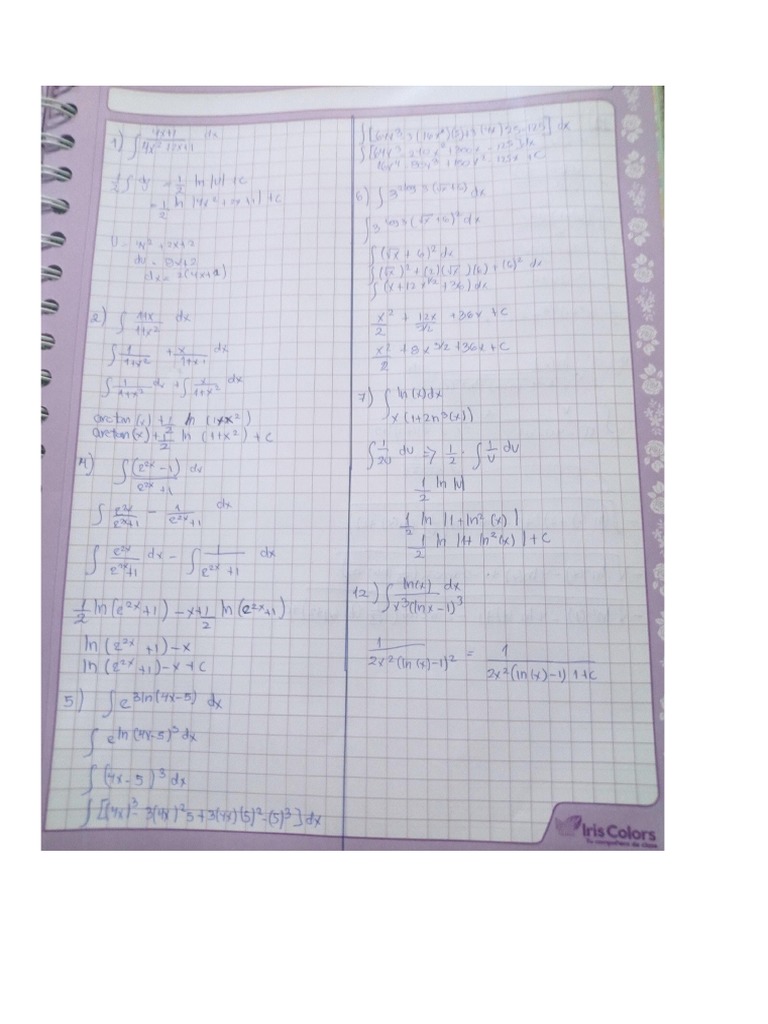 1) ∫ (4x+1)/(4x²+2x+1) dx
= 1/2 ln |U| + C
= 1/2 ln |4x²+2x+1| + C
2) ∫ (1+x)/(1+x²) dx
∫ 1/(1+x²) + x/(1+x²) dx
∫ 1/(1+x²) dx + ∫ x/(1+x²) dx
arctan(x) + 1/2 ln (1+x²)
arctan(x) + 1/2 ln (1+x²) + C
4) ∫ (e^(2x) - 1)/(e^(2x) + 1) dx
∫ e^(2x)/(e^(2x)+1) - 1/(e^(2x)+1) dx
∫ e^(2x)/(e^(2x)+1) dx - ∫ 1/(e^(2x)+1) dx
1/2 ln(e^(2x)+1) - x + 1/2 ln(e^(2x)+1)
ln(e^(2x)+1) - x
ln(e^(2x)+1) - x + C
5) ∫ e^(3ln(4x-5)) dx
∫ e^(ln(4x-5)^3) dx
∫ (4x-5)^3 dx
∫ [(4x)^3 - 3(4x)^2 5 + 3(4x)(5)^2 - (5)^3] dx
∫ [64x³ - 240x² + 300x - 125] dx
16x⁴ - 80x³ + 150x² - 125x + C
∫ (√x + 6)² dx
∫ (√x)² + (2)(√x)(6) + (6)² dx
∫ (x + 12x^(1/2) + 36) dx
x²/2 + 12x/(3/2) + 36x + C
x²/2 + 8x^(3/2) + 36x + C
7) ∫ ln(x)dx
x(1+2n³(x))
∫ 1/(2U) dU => 1/2 · ∫ 1/U dU
1/2 ln |U|
1/2 ln |1+ln²(x)|
1/2 ln |1+ln²(x)| + C
12) ∫ ln(x)/(x³(lnx-1)³) dx
1/(2x²(ln(x)-1)²) = 1/(2x²(ln(x)-1) 1+C
Iris Colors